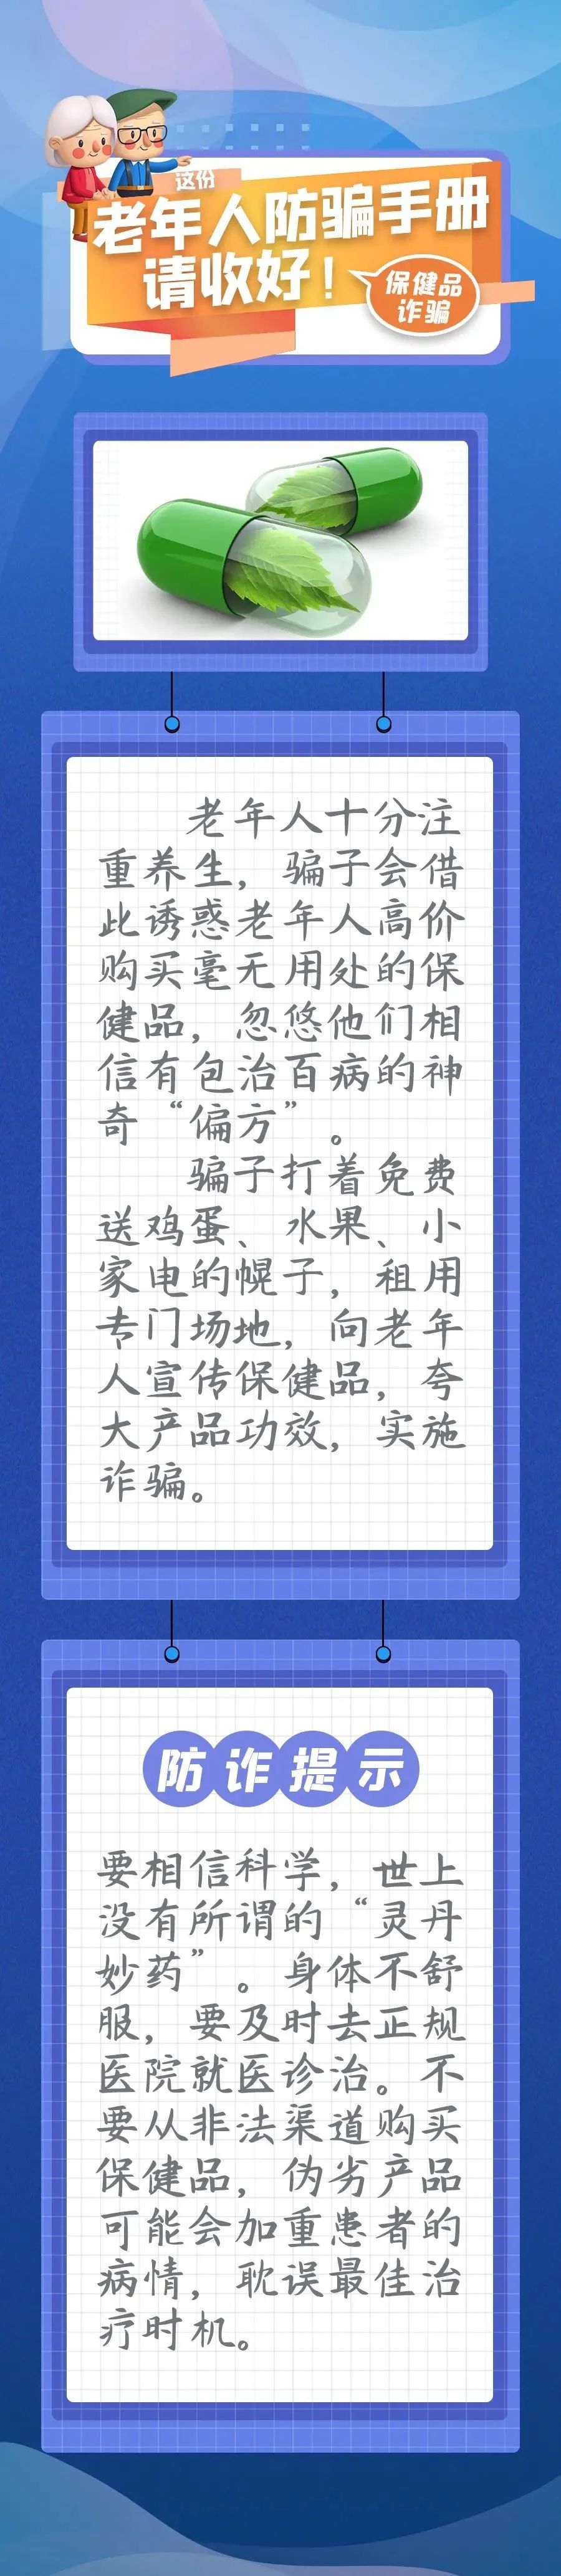 这份
老年人防骗手册
请收好！
保健品
诈骗
老年人十分注
重养生，骗子会借
此诱惑老年人高价
购买毫无用处的保
健品，忽悠他们相
信有包治百病的神
奇“偏方”。
骗子打着免费
送鸡蛋、水果、小
家电的幌子，租用
专门场地，向老年
人宣传保健品，夸
大产品功效，实施
诈骗。
防诈提示
要相信科学，世上
没有所谓的“灵丹
妙药”。身体不舒
服，要及时去正规
医院就医诊治。不
要从非法渠道购买
保健品，伪劣产品
可能会加重患者的
病情，耽误最佳治
疗时机。